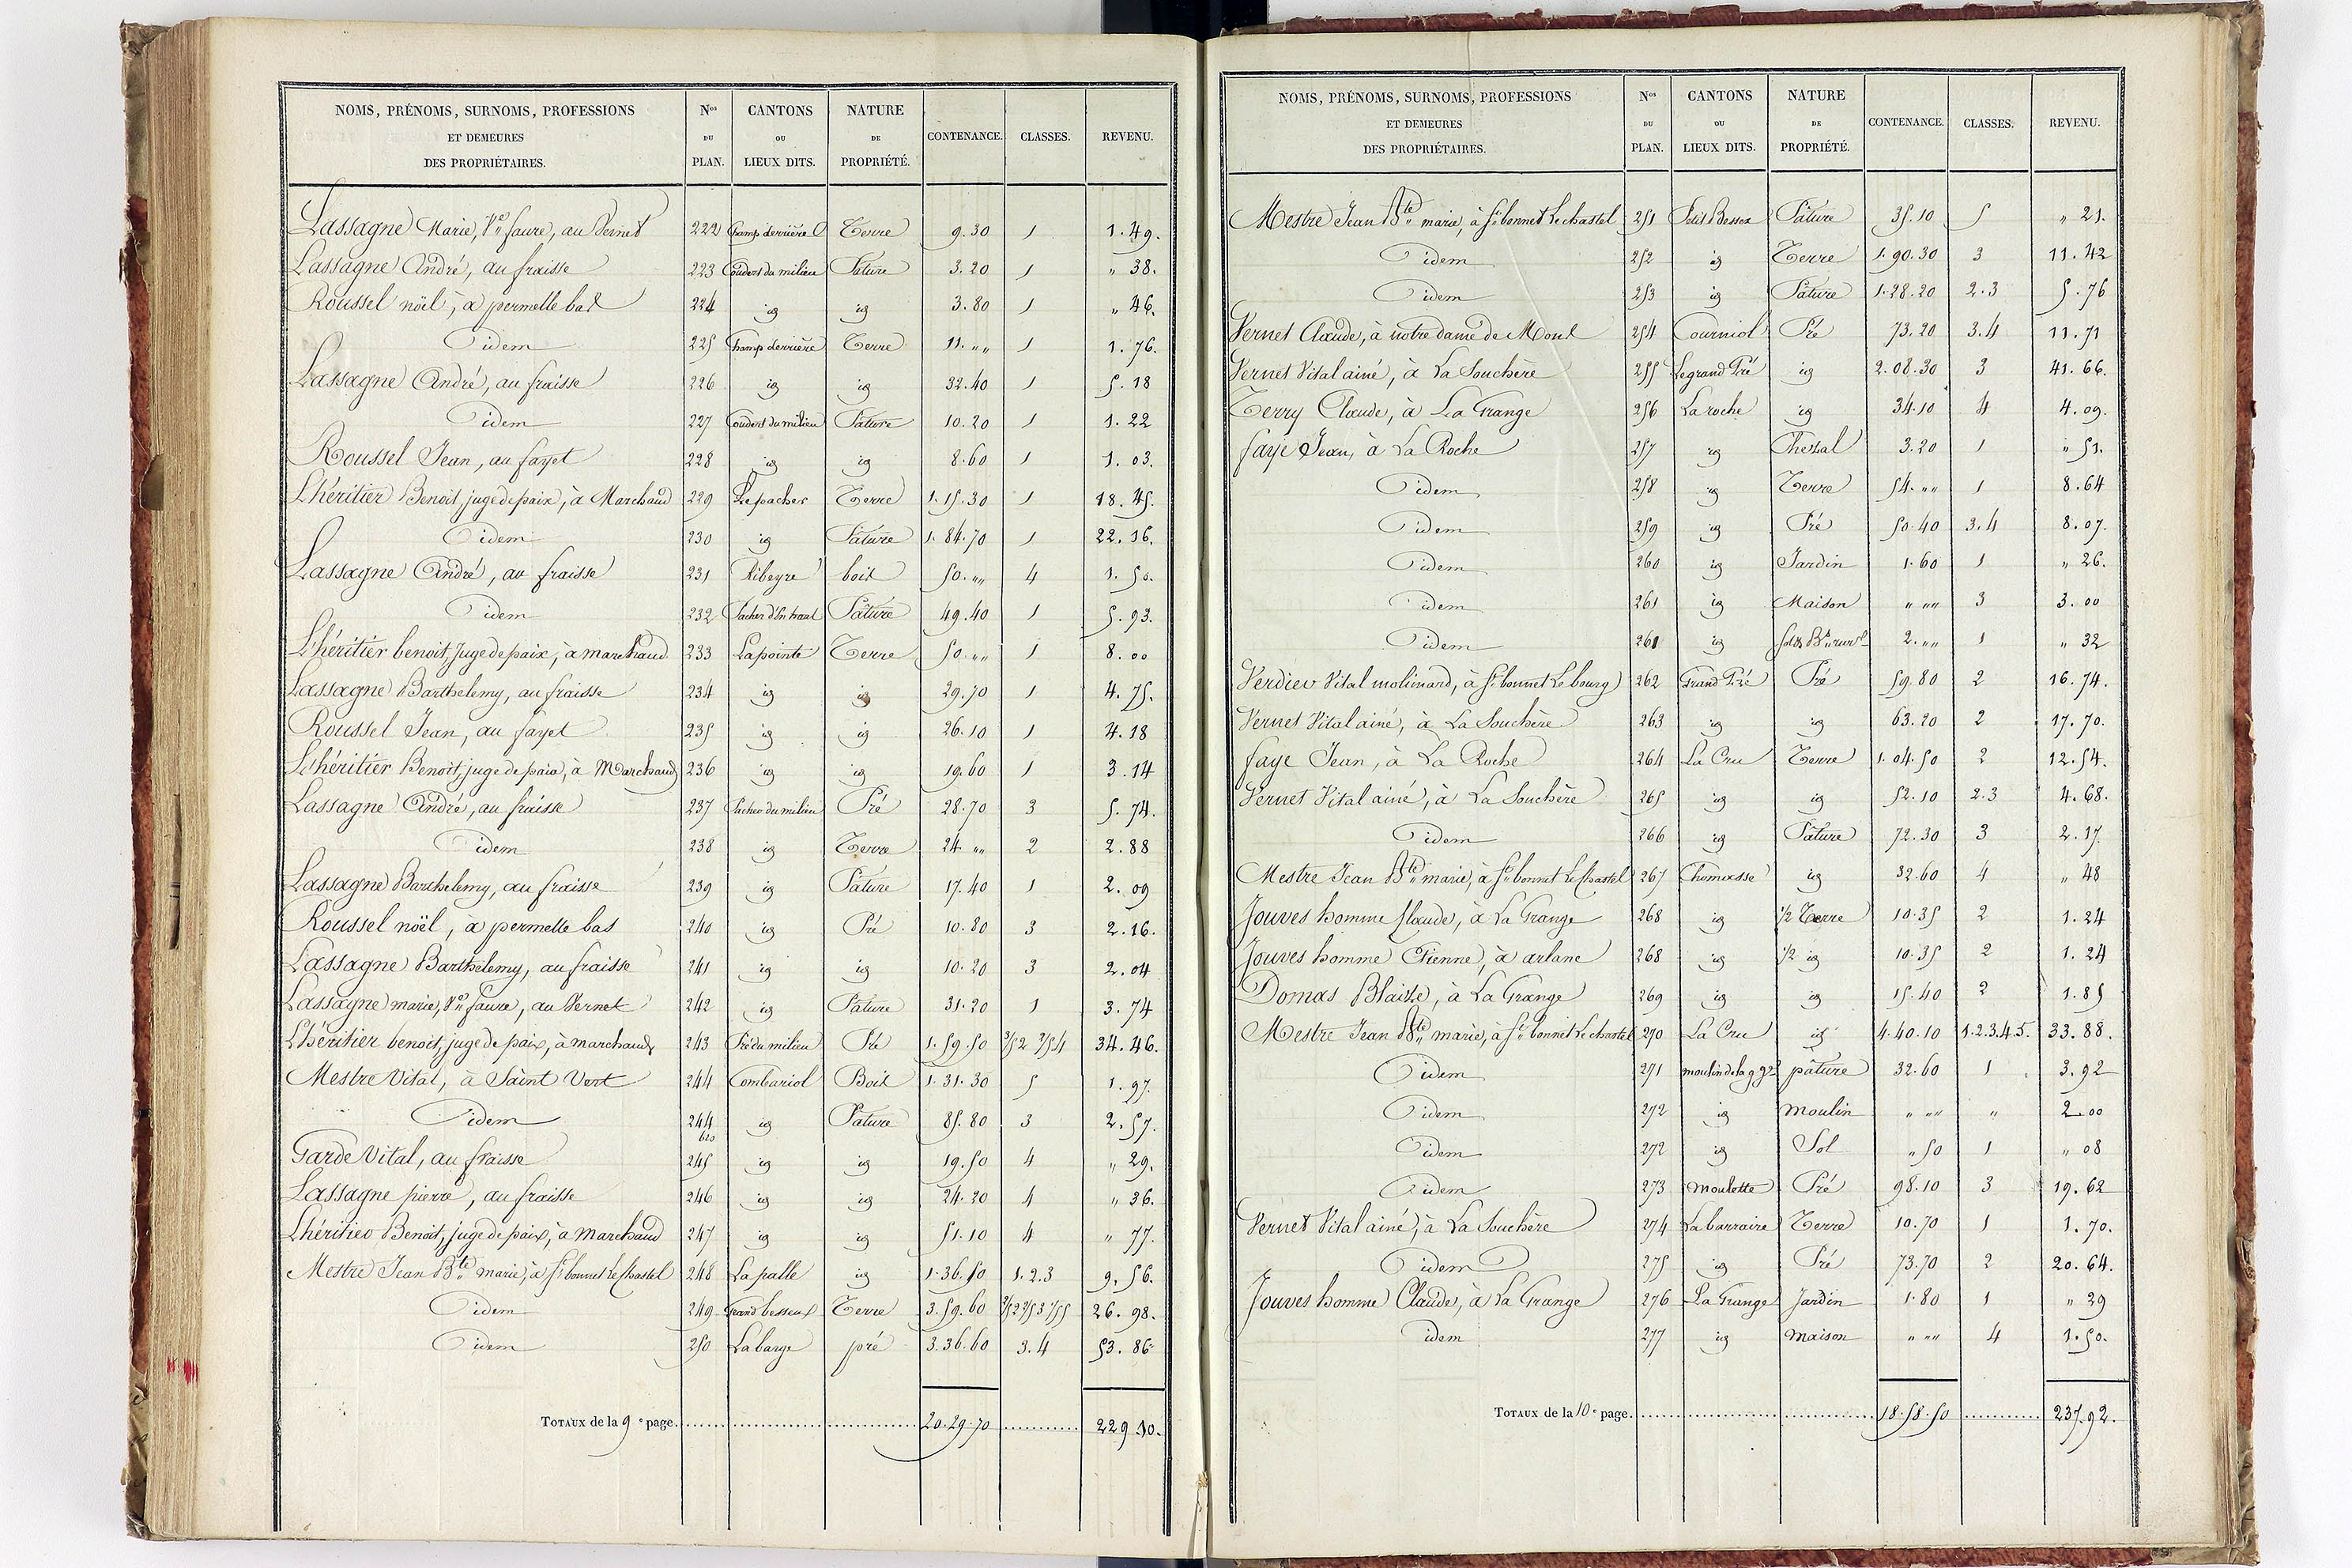 NOMS, PRÉNOMS, SURNOMS, PROFESSIONS ET DEMEURES DES PROPRIÉTAIRES. Nos DU PLAN. CANTONS OU LIEUX DITS. NATURE DE PROPRIÉTÉ. CONTENANCE. CLASSES. REVENU.
Lassagne Marie, Ve faure, au Vernet 222 Champ derrière Terre 9.30 1 1.49.
Lassagne André, au fraisse 223 Couderts du milieu Pature 3.20 1 " 38.
Roussel noël, à permelle bas 224 id id 3.80 1 " 46.
idem 225 Champ derrière Terre 11. " " 1 1.76.
Lassagne André, au fraisse 226 id id 32.40 1 5.18
idem 227 Couderts du milieu Pature 10.20 1 1.22
Roussel Jean, au fayet 228 id id 8.60 1 1.03.
L'héritier Benoit, juge de paix, à Marchaud 229 Le pacher Terre 1.15.30 1 18.45.
idem 230 id Pature 1.84.70 1 22.16.
Lassagne André, au fraisse 231 Ribeyre bois 50. " " 4 1.50.
idem 232 Pacher Pâture 49.40 1 5.93.
L'héritier benoit, Juge de paix, à marchaud 233 La pointe Terre 50. " " 1 8.00
Lassagne Barthelemy, au fraisse 234 id id 29.70 1 4.75.
Roussel Jean, au fayet 235 id id 26.10 1 4.18
L'héritier Benoit, juge de paix, à Marchaud 236 id id 19.60 1 3.14
Lassagne André, au fraisse 237 Pacher du milieu Pré 28.70 3 5.74.
idem 238 id Terre 24. " " 2 2.88
Lassagne Barthelemy, au fraisse 239 id Pature 17.40 1 2.09
Roussel noël, à permelle bas 240 id Pré 10.80 3 2.16.
Lassagne Barthélemy, au fraisse 241 id id 10.20 3 2.04
Lassagne marie, Ve faure, au Vernet 242 id Pature 31.20 1 3.74
L'héritier benoit, juge de paix, à marchaud 243 Pré du milieu Pré 1.59.50 3/5 2 2/5 4 34.46.
Mestre Vital, à Saint Vert 244 Combariol Bois 1.31.30 5 1.97.
idem 244 bis id Pature 85.80 3 2.57.
Garde Vital, au fraisse 245 id id 19.50 4 " 29.
Lassagne pierre, au fraisse 246 id id 24.20 4 " 36.
L'héritier Benoit, juge de paix, à Marchaud 247 id id 51.10 4 " 77.
Mestre Jean Bte marie, à St bonnet le Chastel 248 La palle id 1.36.50 1.2.3 9.56.
idem 249 Grand besseux Terre 3.59.60 2/5 2 2/5 3 1/5 5 26.98.
idem 250 La barge pré 3.36.60 3.4 53.86
TOTAUX de la 9e page. 20.29.70 229.10.
NOMS, PRÉNOMS, SURNOMS, PROFESSIONS ET DEMEURES DES PROPRIÉTAIRES. Nos DU PLAN. CANTONS OU LIEUX DITS. NATURE DE PROPRIÉTÉ. CONTENANCE. CLASSES. REVENU.
Mestre Jean Bte marie, à St bonnet Le chastel 251 Petit Bessex Pâture 35.10 5 " 21.
idem 252 id Terre 1.90.30 3 11.42
idem 253 id Pature 1.28.20 2.3 5.76
Vernet Claude, à notre dame de Mont 254 Courniol Pré 73.20 3.4 11.71
Vernet Vital ainé, à La Souchère 255 Le grand Pré id 2.08.30 3 41.66.
Terry Claude, à La Grange 256 La roche id 34.10 4 4.09.
faye Jean, à La Roche 257 id Chesal 3.20 1 " 51.
idem 258 id Terre 54. " " 1 8.64
idem 259 id Pré 50.40 3.4 8.07.
idem 260 id Jardin 1.60 1 " 26.
idem 261 id Maison " " " 3 3.00
idem 261 id 2. " " 1 " 32
Verdier Vital molimard, à St bonnet Le bourg 262 Grand Pré Pré 59.80 2 16.74.
Vernet Vital ainé, à La Souchère 263 id id 63.20 2 17.70.
faye Jean, à La Roche 264 La Cru Terre 1.04.50 2 12.54.
Vernet Vital ainé, à La Souchère 265 id id 52.10 2.3 4.68.
idem 266 id Pâture 72.30 3 2.17.
Mestre Jean Bte marie, à St bonnet Le Chastel 267 Chomasse id 32.60 4 " 48
Jouves homme Claude, à La Grange 268 id 1/2 Terre 10.35 2 1.24
Jouves homme Etienne, à arlanc 268 id 1/2 id 10.35 2 1.24
Domas Blaize, à La Grange 269 id id 15.40 2 1.85
Mestre Jean Bte marie, à St bonnet Le chastel 270 La Cru id 4.40.10 1.2.3.4.5. 33.88.
idem 271 moulin de la pâture 32.60 1 3.92
idem 272 id moulin " " " " 2.00
idem 272 id Sol " 50 1 " 08
idem 273 Moulette Pré 98.10 3 19.62
Vernet Vital ainé, à La Souchère 274 La barraire Terre 10.70 1 1.70.
idem 275 id Pré 73.70 2 20.64.
Jouves homme Claude, à La Grange 276 La Grange Jardin 1.80 1 " 29
idem 277 id Maison " " " 4 1.50.
TOTAUX de la 10e page. 18.58.50 237.92.